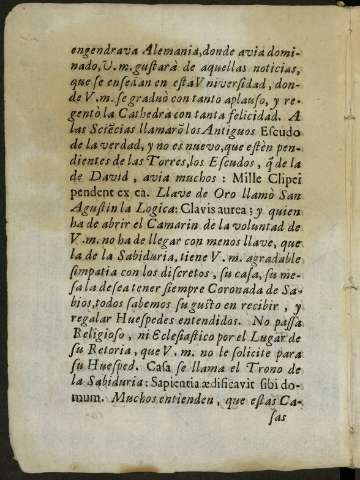 engendrava Alemania, donde avia domi-
nado, V. m. gustarà de aquellas noticias,
que se enseñan en esta Vniversidad, don-
de V. m. se graduò con tanto aplauso, y re-
gentò la Cathedra con tanta felicidad. A
las Sciẽcias llamarõ los Antiguos Escudo
de la verdad, y no es nuevo, que estèn pen-
dientes de las Torres, los Escudos, q̃ de la
de David, avia muchos: Mille Clipei
pendent ex ea. Llave de Oro llamò San
Agustin la Logica: Clavis aurea; y quien
ha de abrir el Camarin de la voluntad de
V. m. no ha de llegar con menos llave, que
la de la Sabiduria, tiene V. m. agradable
simpatia con los discretos, su casa, su me-
sa la desea tener siempre Coronada de Sa-
bios, todos sabemos su gusto en recibir, y
regalar Huespedes entendidos. No passa
Religioso, ni Eclesiastico por el Lugar de
su Retoria, que V. m. no le solicite para
su Huesped. Casa se llama el Trono de
la Sabiduria: Sapientia ædificavit sibi do-
mum. Muchos entienden, que estas Ca-
sas